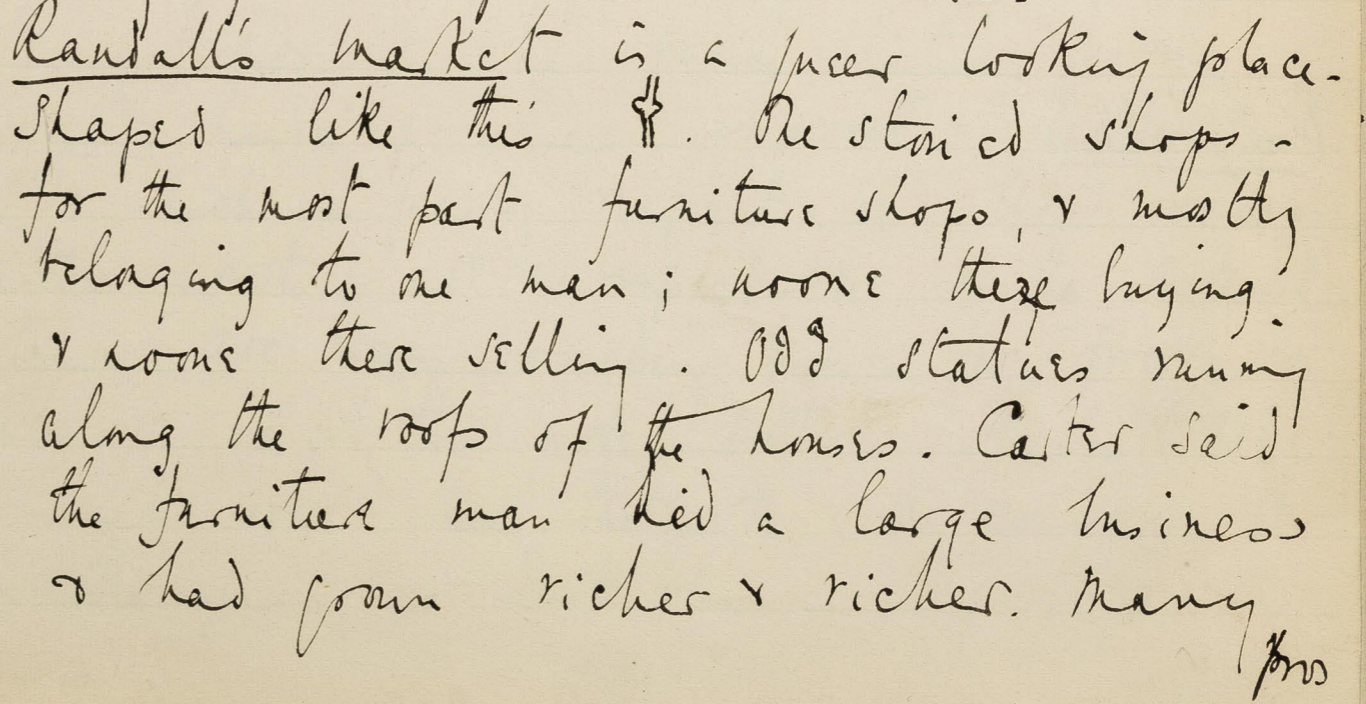 Randall's market is a queer looking place -
shaped like this . One storied shops -
for the most part furniture shops, & mostly
belonging to one man; noone there buying
& noone there selling. Odd statues running
along the roofs of the houses. Carter said
the furniture man did a large business
& had grown richer & richer. Many
pros